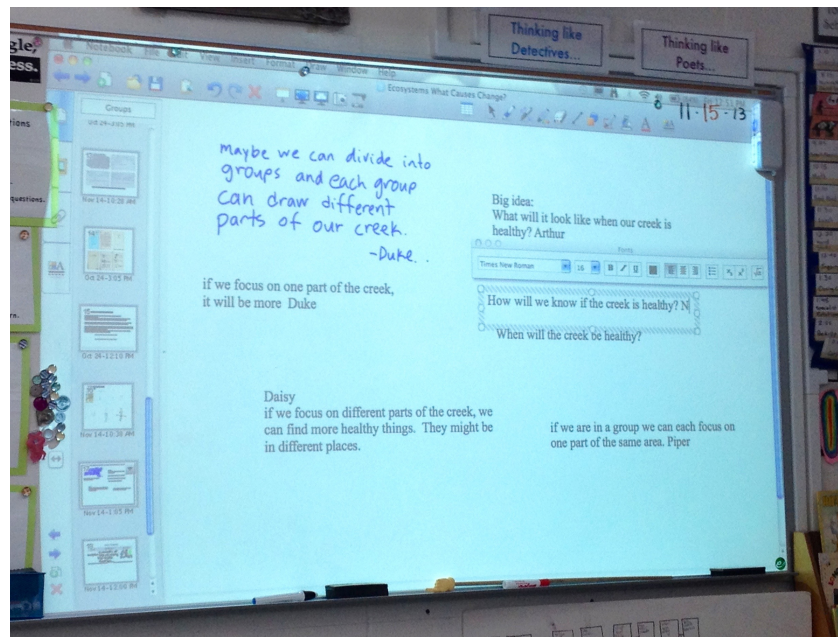 Thinking like
Detectives...
Thinking like
Poets...
gle,
ess.
Notebook File Edit View Insert Format Draw Window Help
Ecosystems What Causes Change?
11-15-13
Groups
Nov 14-10:28 AM
Oct 24-3:05 PM
Oct 24-12:10 PM
Nov 14-10:28 AM
Nov 14-1:05 PM
Nov 14-12:00 PM
tions
questions.
maybe we can divide into
groups and each group
can draw different
parts of our creek.
-Duke.
Big idea:
What will it look like when our creek is
healthy? Arthur
Fonts
Times New Roman 16 B I U
How will we know if the creek is healthy? N
When will the creek be healthy?
if we focus on one part of the creek,
it will be more Duke
Daisy
if we focus on different parts of the creek, we
can find more healthy things. They might be
in different places.
if we are in a group we can each focus on
one part of the same area. Piper